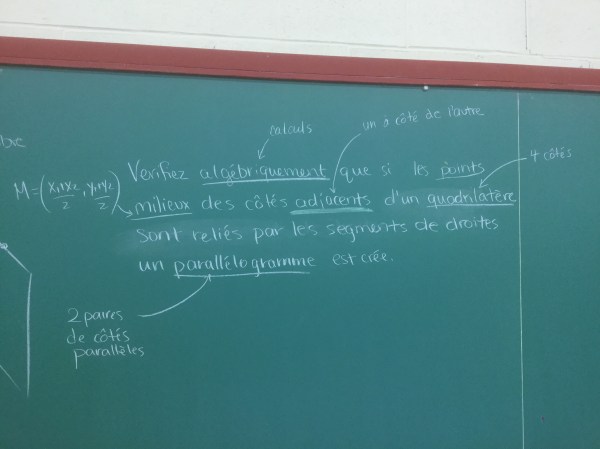 calculs
un à côté de l'autre
Verifiez algébriquement que si les points
4 côtés
M = (x₁+x₂/2, y₁+y₂/2)
milieux des côtés adjacents d'un quadrilatère
sont reliés par les segments de droites
un parallélogramme est crée.
2 paires
de côtés
parallèles